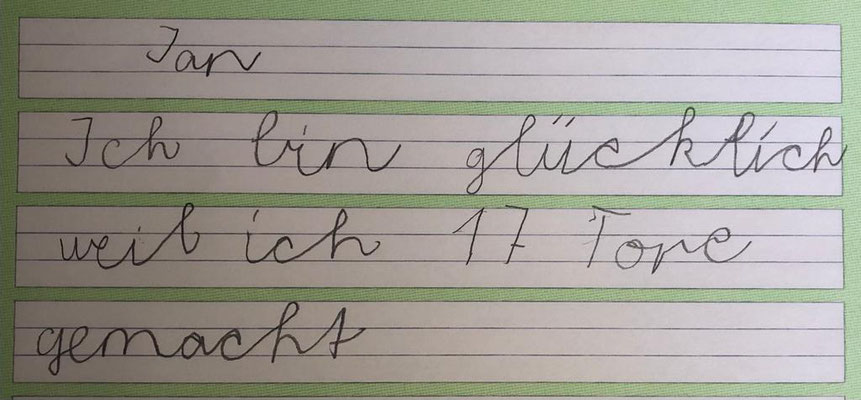 Jan
Ich bin glücklich
weil ich 17 Tore
gemacht